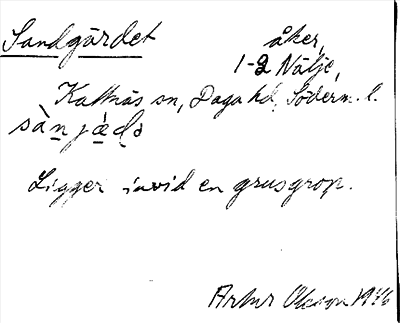 Sandgärdet åker,
1-2 Nälje,
Kattnäs sn, Daga hd, Söderm. l.
sànjæ̀ḍə
Ligger invid en grusgrop.
Artur Olsson 1946